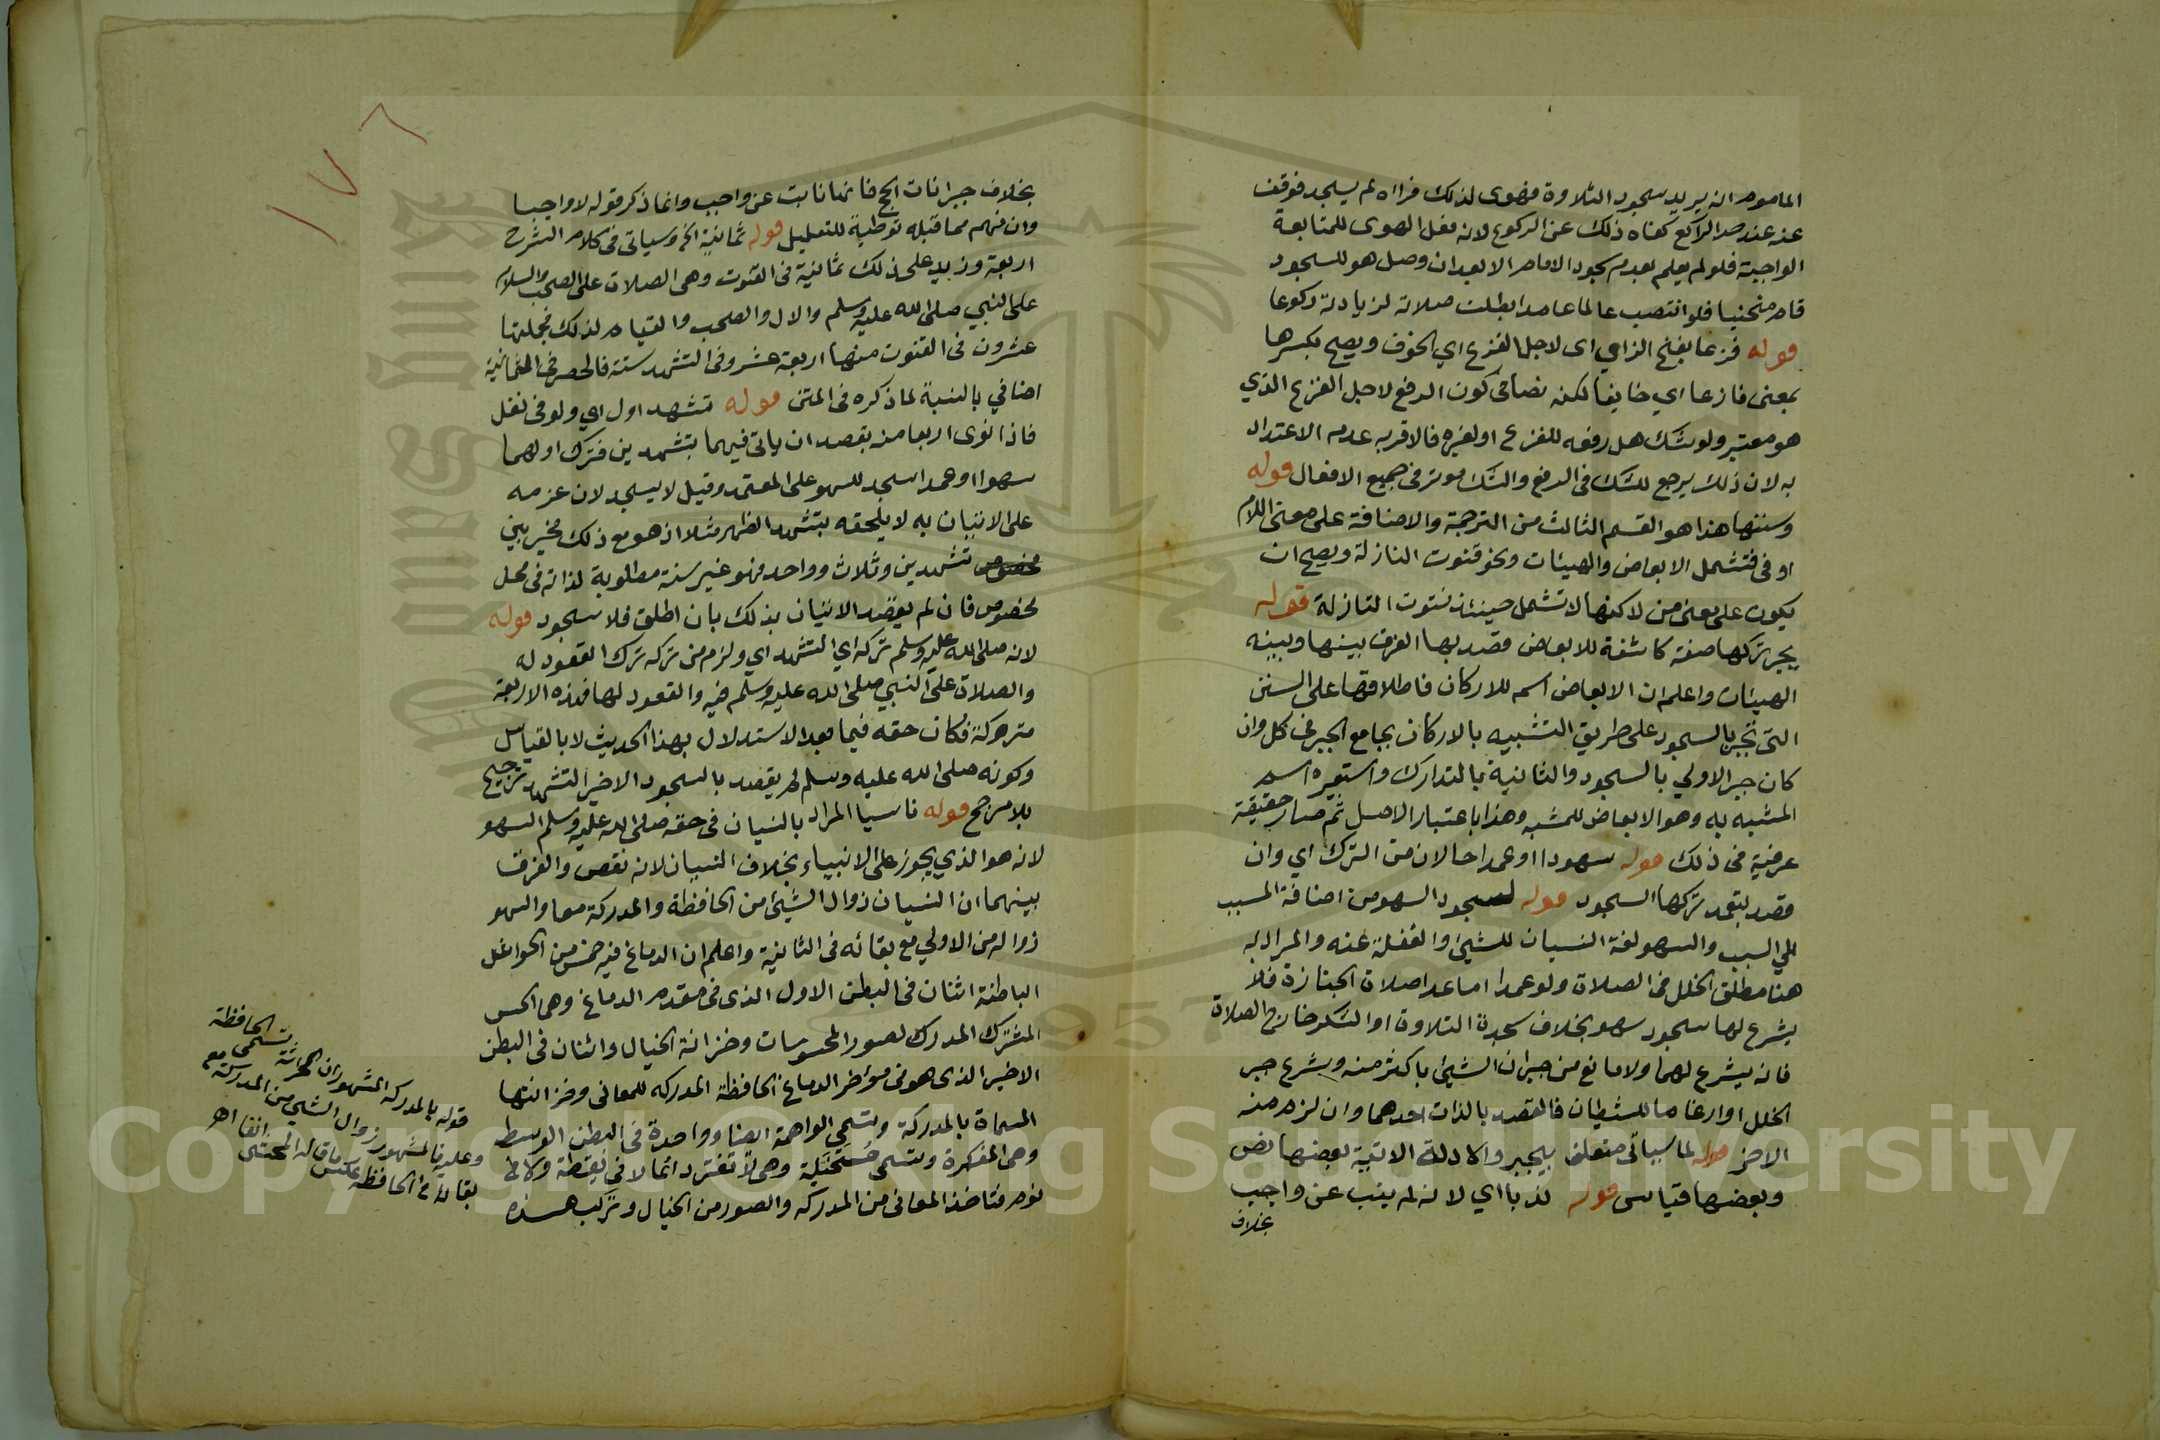 الماموم انه يريد سجود التلاوة فهوى لذلك فراه لم يسجد فوقف
عنه عند حد الراكع كفاه ذلك عن الركوع لانه فعل الهوى للمتابعة
الواجبة فلو لم يعلم بعدم سجود الامام الا بعد ان وصل هو للسجود
قام منحنيا فلو انتصب عالما عامدا بطلت صلاته لزيادته ركوعا
قوله فزعا بفتح الزاي اى لاجل الفزع اي الخوف ويصح بكسرها
بمعنى فازعا اي خايفا لكنه نصا في كون الرفع لاجل الفزع الذي
هو معتبر ولو شك هل رفعه للفزع او لغيره فالاقرب عدم الاعتداد
به لان ذلك يرجع للشك فى الرفع والشك موثر فى جميع الافعال قوله
وسننها هذا هو القسم الثالث من الترجمة والاضافة على معنى اللام
او فى فتشمل الابعاض والهيئات ونحو قنوت النازلة ويصح ان
يكون على معنى من لاكنها لا تشمل حينئذ قنوت النازلة قوله
يجبر تركها صفة كاشفة للابعاض قصد بها الفرق بينها وبين
الهيئات واعلم ان الابعاض اسم للاركان فاطلاقها على السنن
التى تجبر بالسجود على طريق التشبيه بالاركان بجامع الجبر فى كل وان
كان جبر الاولي بالسجود والثانية بالتدارك واستعير اسم
المشبه به وهو الابعاض للمشبه وهذا باعتبار الاصل ثم صار حقيقة
عرفية فى ذلك قوله سهوا او عمدا حالان من الترك اي وان
قصد بتعمد تركها السجود قوله لسجود السهو من اضافة المسبب
الي السبب والسهو لغة النسيان للشيئ والغفلة عنه والمراد به
هنا مطلق الخلل فى الصلاة ولو عمدا اما عدا صلاة الجنازة فلا
يشرع لها سجود سهو بخلاف سجدة التلاوة او الشكر خارج الصلاة
فانه يشرع لهما ولا مانع من جبران الشيئ باكثر منه ويشرع جبر
الخلل او ارغاما للشيطان فالقصد بالذات احدهما وان لزم منه
الاخر قوله لما سياتى متعلق بيجبر والادلة الاتية بعضها نص
وبعضها قياس قوله ندبا اي لانه لم ينب عن واجب
بخلاف
١٧٦
بخلاف جبرانات الحج فانها نابت عن واجب وانما ذكر قوله لا واجبا
وان فهم مما قبله توطية للتعليل قوله ثمانية الخ وسياتى فى كلام الشرح
اربعة وزيد على ذلك ثمانية فى القنوت وهى الصلاة على الصحب والسلام
على النبي صلى الله عليه وسلم والال والصحب والقيام لذلك فجملتها
عشرون فى القنوت منها اربعة عشر وفى التشهد ستة فالحصر فى الثمانية
اضافي بالنسبة لما ذكره فى المتن قوله تشهد اول اي ولو فى نفل
فاذا نوى اربعا منه بقصد ان ياتى فيهما بتشهدين فترك اولهما
سهوا او عمدا سجد للسهو على المعتمد وقيل لا يسجد لان عزمه
على الاتيان به لا يلحقه بتشهد الظهر مثلا اذ هو مع ذلك مخير بين
تشهدين وثلاث وواحد فهو غير سنة مطلوبة لذاته فى محل
مخصوص فان لم يقصد الاتيان بذلك بان اطلق فلا سجود قوله
لانه صلى الله عليه وسلم تركه اي التشهد اي ولزم من تركه ترك القعود له
والصلاة على النبي صلى الله عليه وسلم فيه والقعود لها فهذه الاربعة
متروكة فكان حقه فيما بعد الاستدلال بهذا الحديث لا بالقياس
وكونه صلى الله عليه وسلم لم يقصد بالسجود الا خير التشهد ترجيح
بلا مرجح قوله ناسيا المراد بالنسيان فى حقه صلى الله عليه وسلم السهو
لانه هو الذي يجوز على الانبياء بخلاف النسيان لانه نقص والفرق
بينهما ان النسيان زوال الشيئ من الحافظة والمدركة معا والسهو
زواله من الاولي مع بقائه فى الثانية واعلم ان الدماغ فيه خمس من الحواس
الباطنة اثنان فى البطن الاول الذى فى مقدم الدماغ وهى الحس
المشترك المدرك لصور المحسوسات وخزانة الخيال واثنان فى البطن
الاخير الذى هو فى موخر الدماغ الحافظة المدركه للمعانى وخزانتها
المسماة بالمدركة وتسمي الواهمة ايضا وواحدة فى البطن الوسط
وهى المفكرة وتسمى متخيلة وهى لا تفتر دائما لا فى يقظة ولا فى
نوم فتاخذ المعانى من المدركه والصور من الخيال وتركب هذه
قوله بالمدركه المشهور ان الخزانة تسمى الحافظة
وعليه فالمشهور زوال الشيئ من المدركة مع
بقائه فى الحافظه عكس ما قاله المحشى انفا اهـ
Copyright © King Saud University
1957